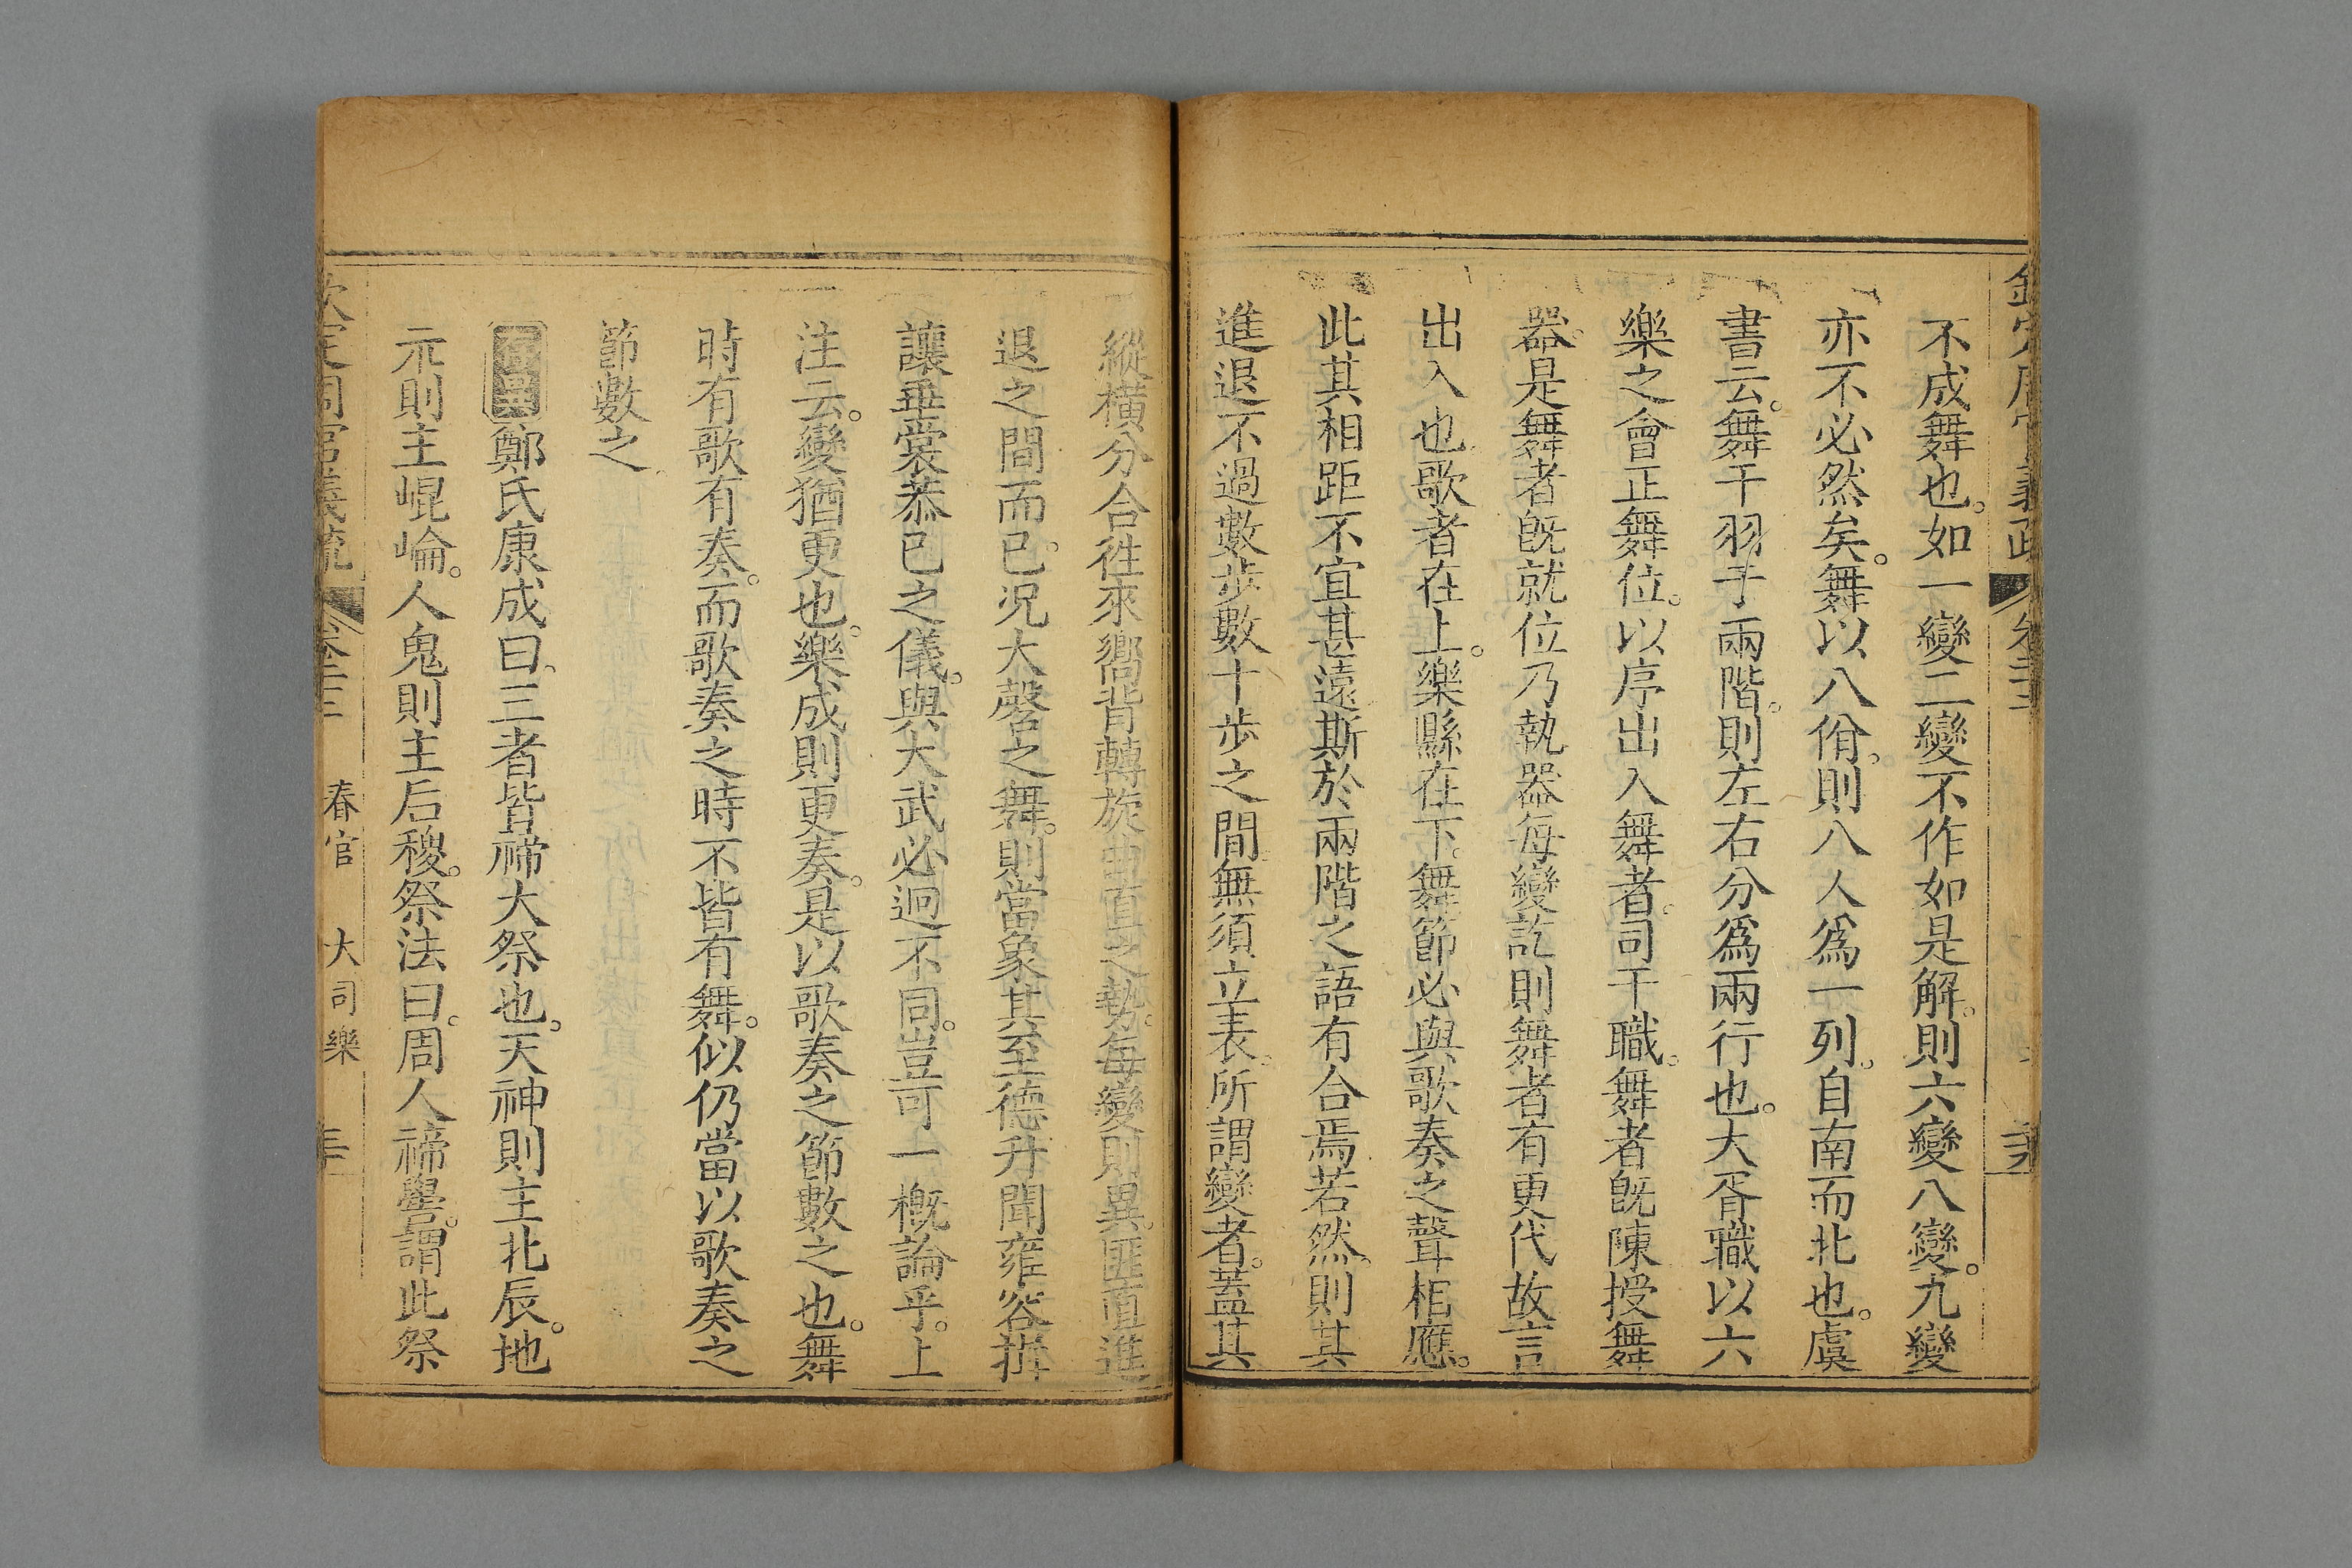 不成舞也。如一變二變不作如是解。則六變八變。九變
亦不必然矣。舞以八佾。則八人爲一列。自南而北也。虞
書云。舞干羽于兩階。則左右分爲兩行也。大胥職以六
樂之會正舞位。以序出入舞者。司干職。舞者旣陳授舞
器。是舞者旣就位乃執器每變訖則舞者有更代故言
出入也歌者在上。樂縣在下。舞節必與歌奏之聲相應。
此其相距不宜甚遠斯於兩階之語有合焉若然。則其
進退不過數步數十步之間。無須立表。所謂變者。蓋其
縱橫分合徃來嚮背轉旋曲直之勢。每變則異。匪直進
退之間而已。况大磬之舞。則當象其至德升聞雍容揖
讓垂裳恭已之儀。與大武必迥不同。豈可一槪論乎。上
注云。變猶更也。樂成則更奏。是以歌奏之節數之也。舞
時有歌有奏。而歌奏之時不皆有舞。似仍當以歌奏之
節數之
鄭氏康成曰。三者皆禘大祭也。天神則主北辰。地
示則主崐崘。人鬼則主后稷。祭法曰。周人禘嚳。謂此祭
欽定周官義疏 卷二十二 春官 大司樂